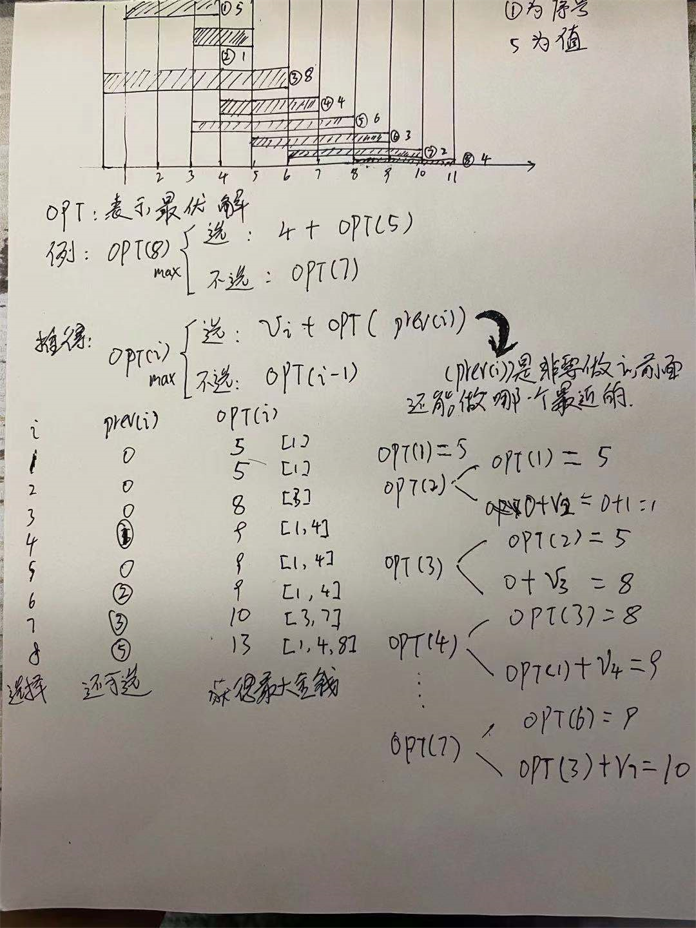 ① 5
①为序号
② 1
5 为值
③ 8
④ 4
⑤ 6
⑥ 3
⑦ 2
⑧ 4
1 2 3 4 5 6 7 8 9 10 11
OPT：表示最优解
例：OPT(8) max
选：4 + OPT(5)
不选：OPT(7)
推得：OPT(i) max
选：Vi + OPT( prev(i))
不选：OPT(i-1)
(prev(i))是非要做i,前面
还能做哪一个最近的.
i prev(i) OPT(i)
1 0 5 [1]
2 0 5 [1]
3 0 8 [3]
4 1 9 [1,4]
5 0 9 [1,4]
6 ② 9 [1,4]
7 ③ 10 [3,7]
8 ⑤ 13 [1,4,8]
选择 还可选 获得最大金钱
OPT(1)=5
OPT(2)
OPT(1) = 5
0+V2=0+1=1
OPT(3)
OPT(2)=5
0+V3 = 8
OPT(4)
OPT(3)=8
OPT(1)+V4=9
⋮
OPT(7)
OPT(6)=9
OPT(3)+V7=10